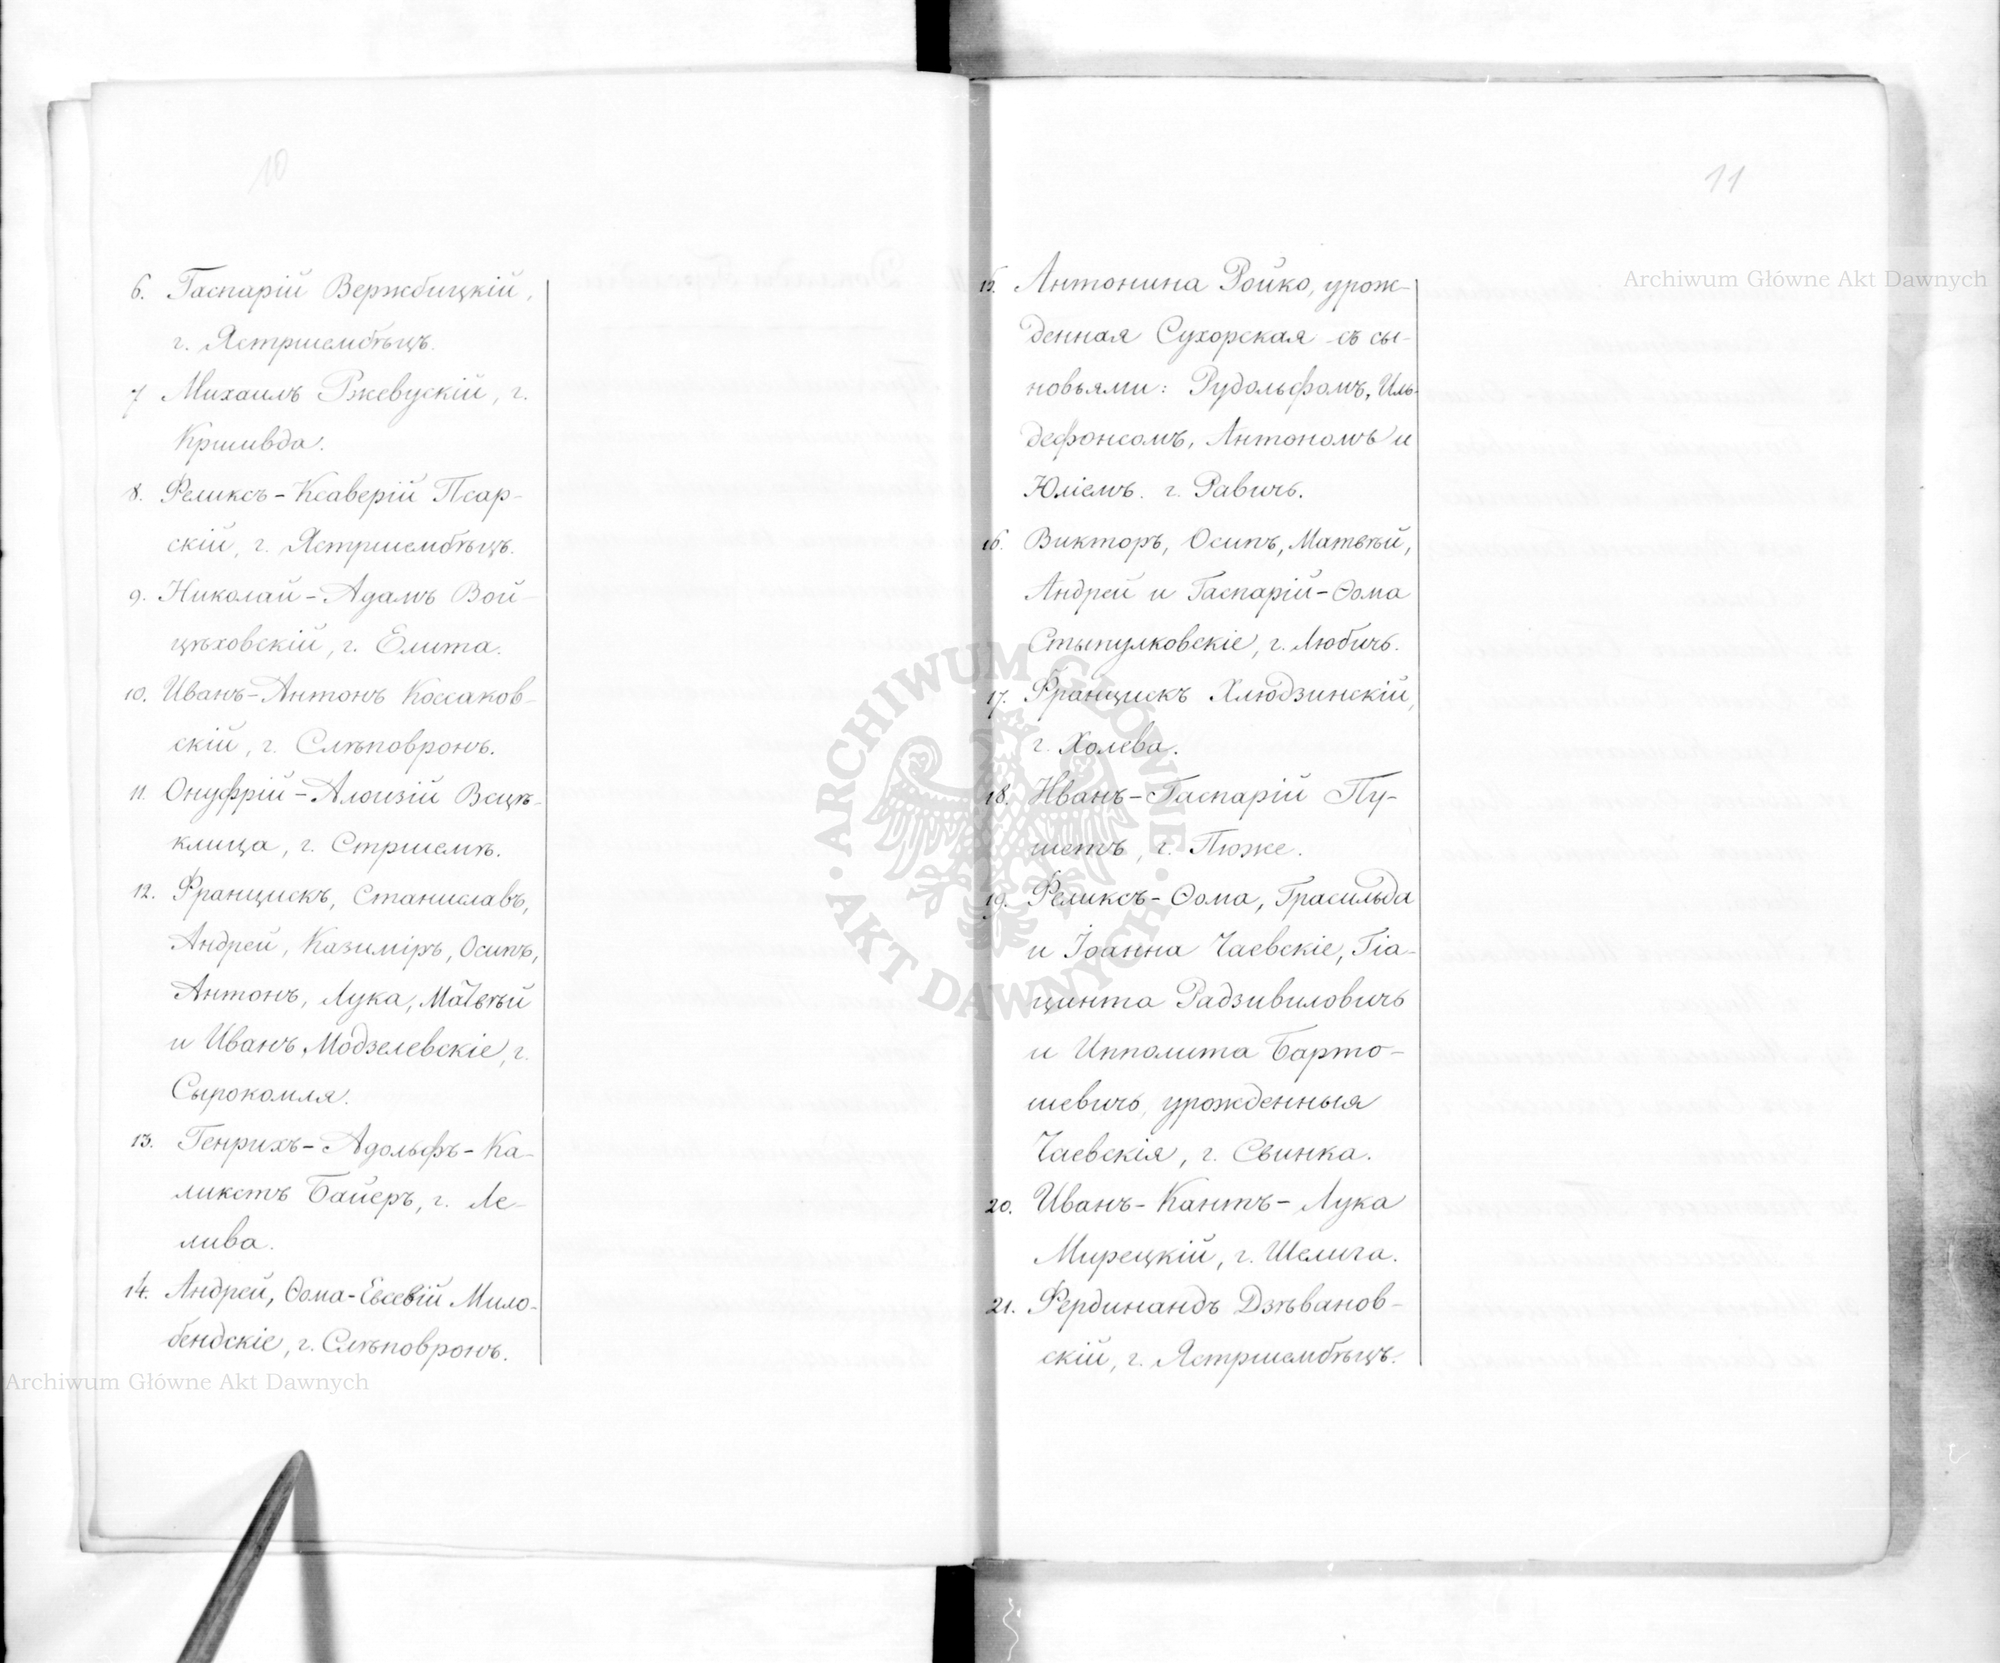 10
6. Гаспарій Вержбицкій,
г. Ястршембѣцъ.
7 Михаилъ Ржевускій, г.
Кршивда.
8. Феликсъ-Ксаверій Псар-
скій, г. Ястршембѣцъ.
9. Николай-Адамъ Вой-
цѣховскій, г. Елита.
10. Иванъ-Антонъ Коссаков-
скій, г. Слѣповронъ.
11. Онуфрій-Алоизій Вецѣ-
клица, г. Стршемѣ.
12. Францискъ, Станиславъ,
Андрей, Казиміръ, Осипъ,
Антонъ, Лука, Матвѣй
и Иванъ Модзелевскіе, г.
Сырокомля.
13. Генрихъ-Адольфъ-Ка-
ликстъ Байеръ, г. Ле-
лива.
14. Андрей, Ѳома-Евсевій Мило-
бендскіе, г. Слѣповронъ.
11
15. Антонина Ройко, урож-
денная Сухорская съ сы-
новьями: Рудольфомъ, Иль-
дефонсомъ, Антономъ и
Юліемъ. г. Равичъ.
16. Викторъ, Осипъ, Матвѣй,
Андрей и Гаспарій-Ѳома
Стыпулковскіе, г. Любичъ.
17. Францискъ Хлюдзинскій,
г. Холева.
18. Иванъ-Гаспарій Пу-
шетъ, г. Пюже.
19. Феликсъ-Ѳома, Грасильда
и Іоанна Чаевскіе, Гіа-
цинта Радзивиловичъ
и Ипполита Барто-
шевичъ, урожденныя
Чаевскія, г. Свинка.
20. Иванъ-Кантъ-Лука
Мирецкій, г. Шелига.
21. Фердинандъ Дзѣванов-
скій, г. Ястршембѣцъ.
Archiwum Główne Akt Dawnych
ARCHIWUM GŁÓWNE · AKT DAWNYCH ·
Archiwum Główne Akt Dawnych